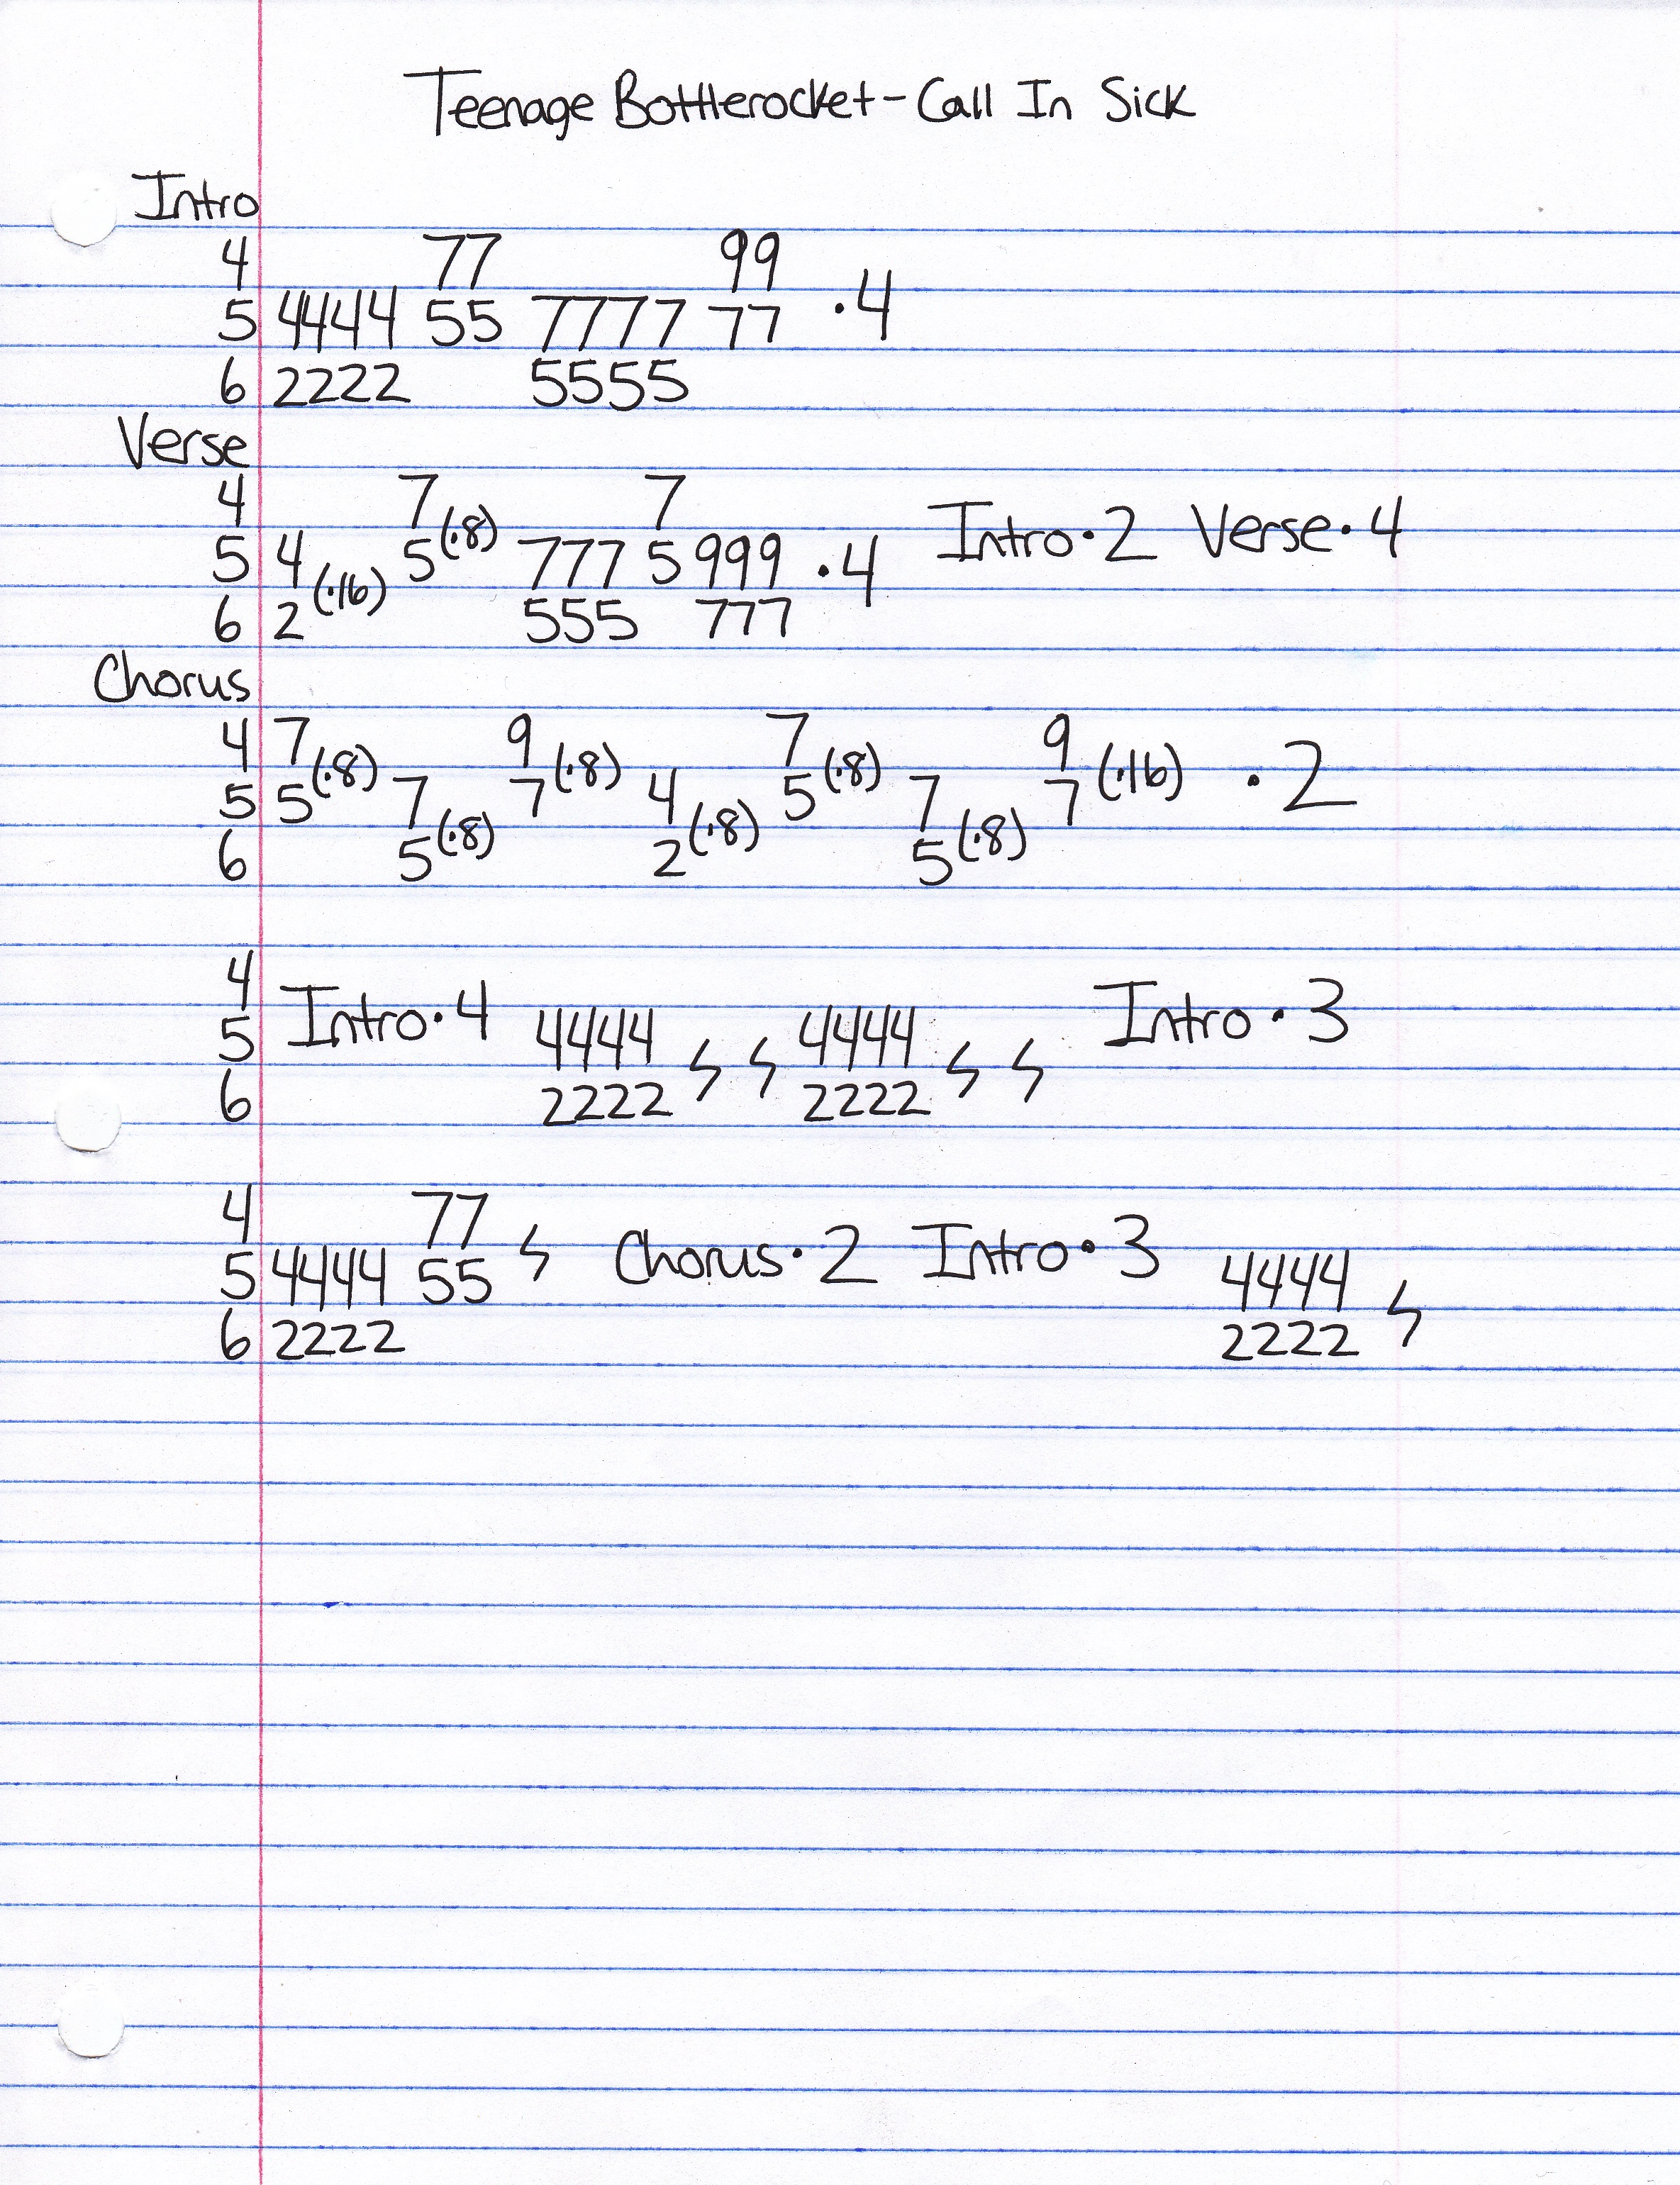 Teenage Bottlerocket - Call In Sick
Intro
4 77 99
5 4444 55 7777 77 · 4
6 2222 5555
Verse
4 7 7
5 4 5 (·8) 777 5 999 · 4 Intro · 2 Verse · 4
6 2 (·16) 555 777
Chorus
4 7 (·8) 9 (·8) 7 (·8) 9 (·16) · 2
5 5 7 7 4 5 7 7
6 5 (·8) 2 (·8) 5 (·8)
4
5 Intro · 4 4444 4444 Intro · 3
6 2222 ϟ ϟ 2222 ϟ ϟ
4 77
5 4444 55 ϟ Chorus · 2 Intro · 3 4444
6 2222 2222 ϟ